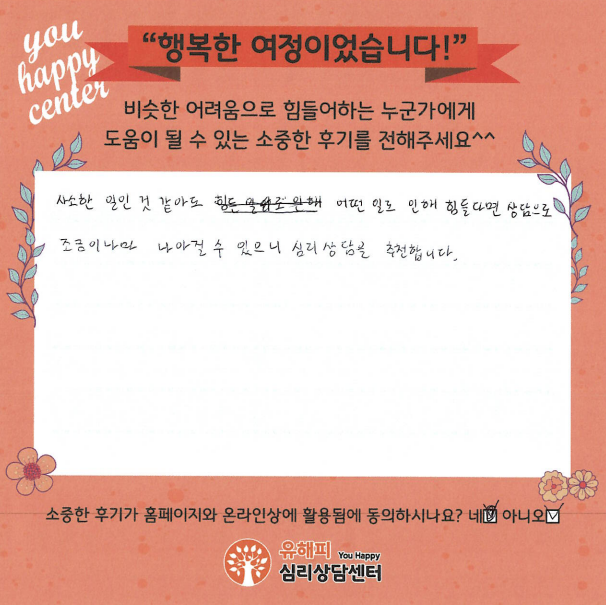 you
happy
center
“행복한 여정이었습니다!”
비슷한 어려움으로 힘들어하는 누군가에게
도움이 될 수 있는 소중한 후기를 전해주세요^^
사소한 일인 것 같아도 어떤 일로 인해 힘들다면 상담으로
조금이나마 나아질 수 있으니 심리상담을 추천합니다.
소중한 후기가 홈페이지와 온라인상에 활용됨에 동의하시나요? 네 아니오
유해피 You Happy
심리상담센터